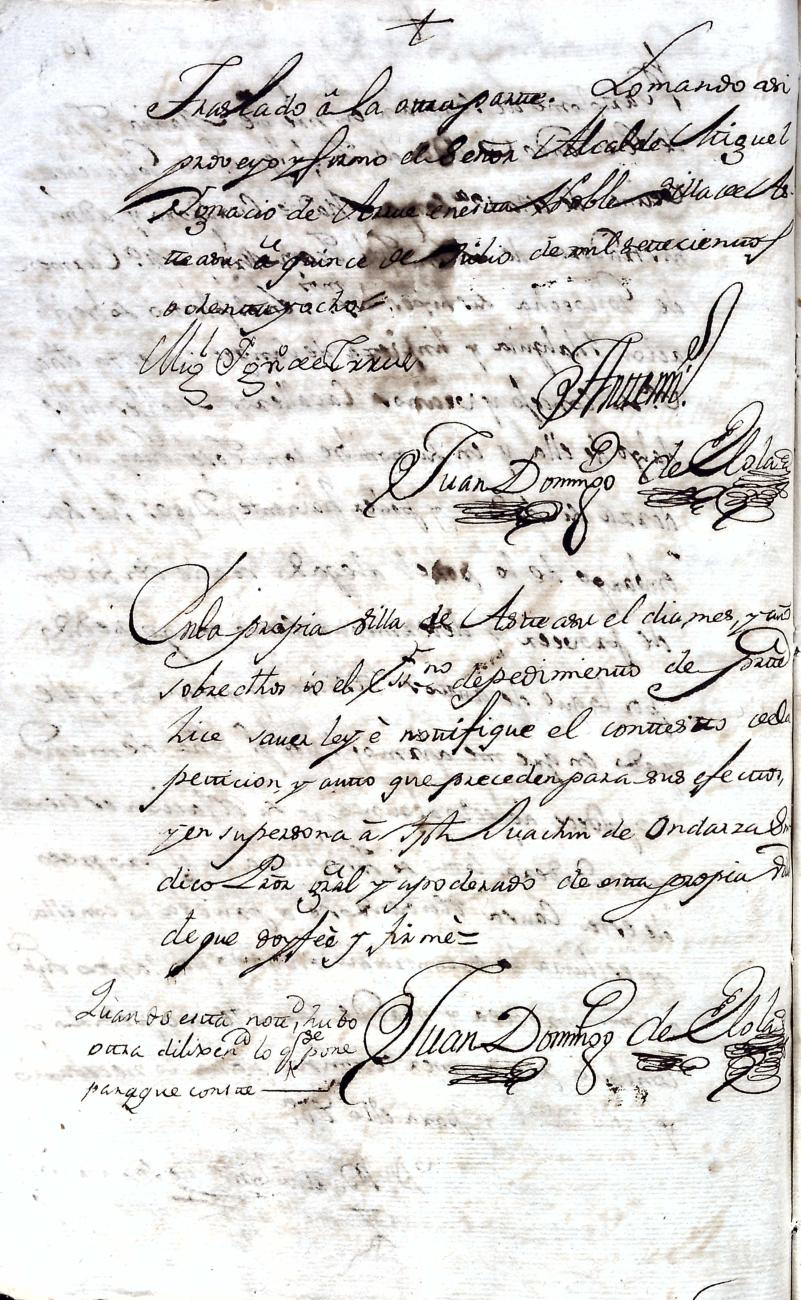 Traslado â la otra parte. Lo mando asi
proveyo y firmo el Señor Alcalde Miguel
Ygnacio de Yrrue en esta Noble villa de As-
teasu â quince de Julio de mil settecienttos
ochenta y ocho
Migl Ygno de Yrrue
Antemi
Juan Domingo de Elola
En la propia villa de Asteasu el dia, mes, y año
sobredhos io el Essno de pedimiento de parte
hice saver ley è nottifique el conttesto de la
petticion y autto que preceden para sus efecttos,
y en su persona â Jph Juachin de Ondarza Sin
dico Pror gral y apoderado de esta propia va
de que doy feè y firmè =
Juan Domingo de Elola
Quando esta nott, hubo
otra dilixen lo q se pone
para que conste